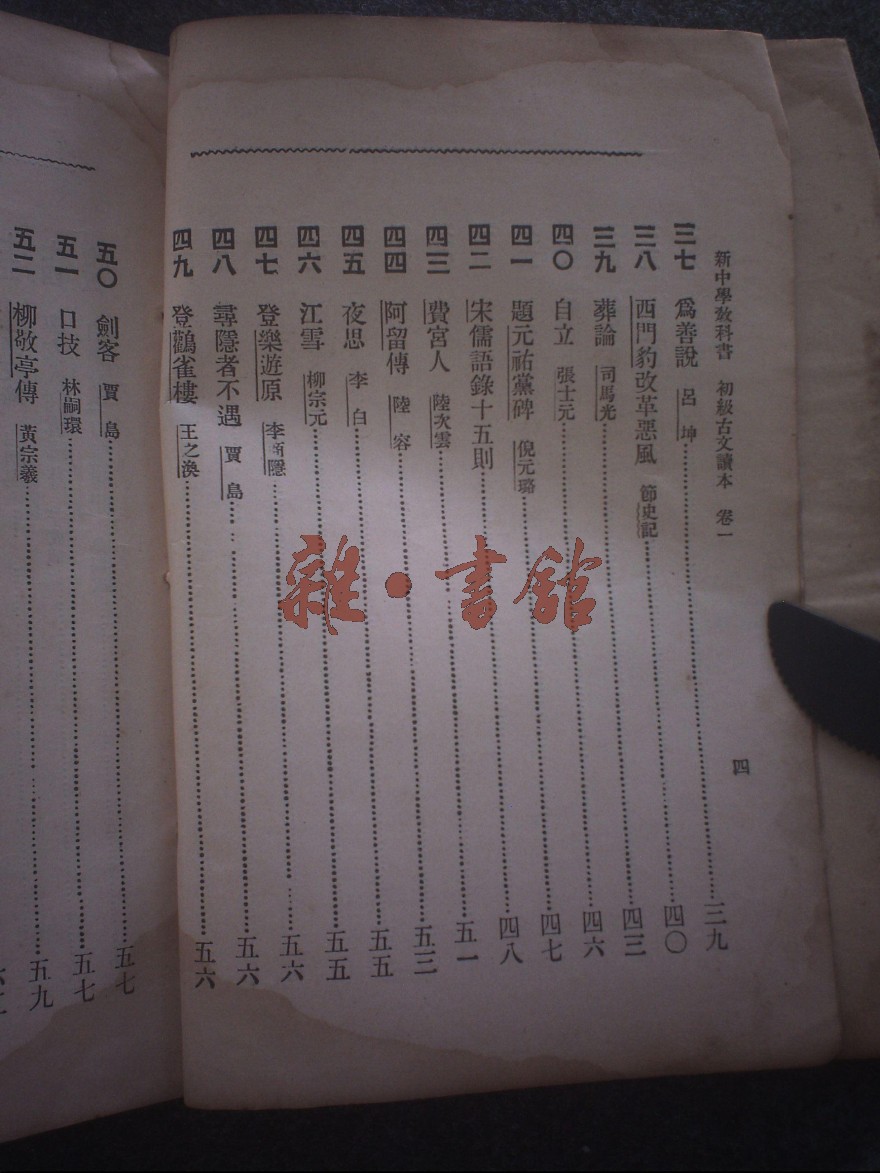 新中學敎科書 初級古文讀本 卷一
四
三七 爲善說 呂坤 三九
三八 西門豹改革惡風 節史記 四〇
三九 葬論 司馬光 四三
四〇 自立 張士元 四六
四一 題元祐黨碑 倪元璐 四七
四二 宋儒語錄十五則 四八
四三 費宮人 陸次雲 五一
四四 阿留傳 陸容 五三
四五 夜思 李白 五五
四六 江雪 柳宗元 五五
四七 登樂遊原 李商隱 五六
四八 尋隱者不遇 賈島 五六
四九 登鸛雀樓 王之渙 五六
五〇 劍客 賈島 五七
五一 口技 林嗣環 五七
五二 柳敬亭傳 黃宗羲 五九
雜·書館